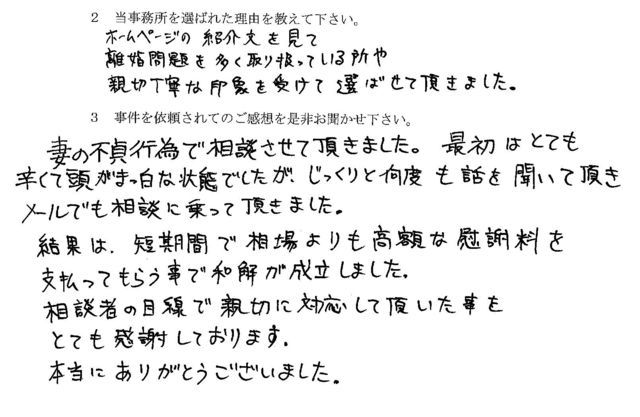 2 当事務所を選ばれた理由を教えて下さい。
ホームページの 紹介文を見て
離婚問題を多く取り扱っている所や
親切丁寧な印象を受けて選ばせて頂きました。
3 事件を依頼されてのご感想を是非お聞かせ下さい。
妻の不貞行為で相談させて頂きました。最初はとても
辛くて頭がまっ白な状態でしたが、じっくりと何度も話を聞いて頂き
メールでも相談に乗って頂きました。
結果は、短期間で相場よりも高額な慰謝料を
支払ってもらう事で和解が成立しました。
相談者の目線で親切に対応して頂いた事を
とても感謝しております。
本当にありがとうございました。